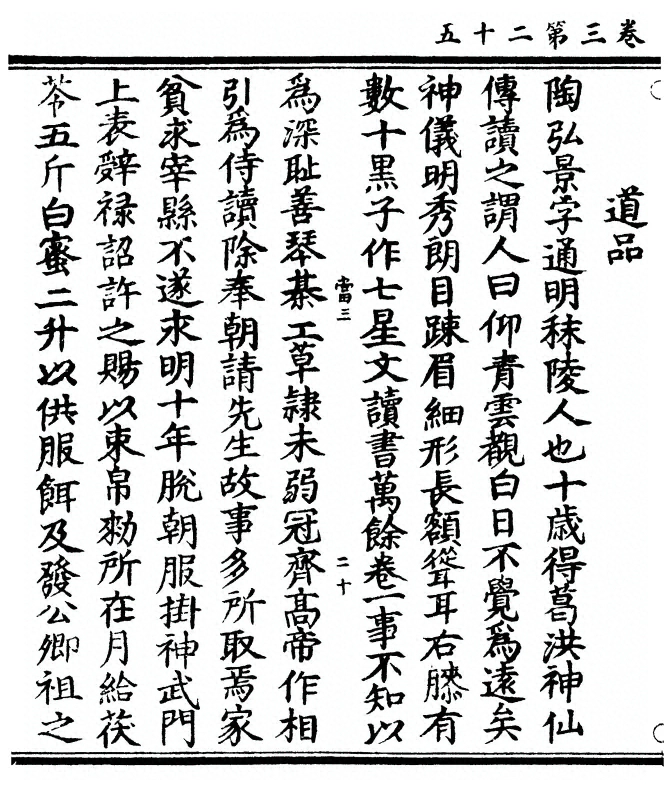 卷三第二十五
道品
陶弘景字通明秣陵人也十歲得葛洪神仙
傳讀之謂人曰仰青雲觀白日不覺爲遠矣
神儀明秀朗目踈眉細形長額聳耳右膝有
數十黑子作七星文讀書萬餘卷一事不知以
當三
二十
爲深耻善琴棊工草隷未弱冠齊髙帝作相
引爲侍讀除奉朝請先生故事多所取焉家
貧求宰縣不遂求明十年脫朝服掛神武門
上表辤禄詔許之賜以束帛勑所在月給茯
苓五斤白蜜二升以供服餌及發公卿祖之